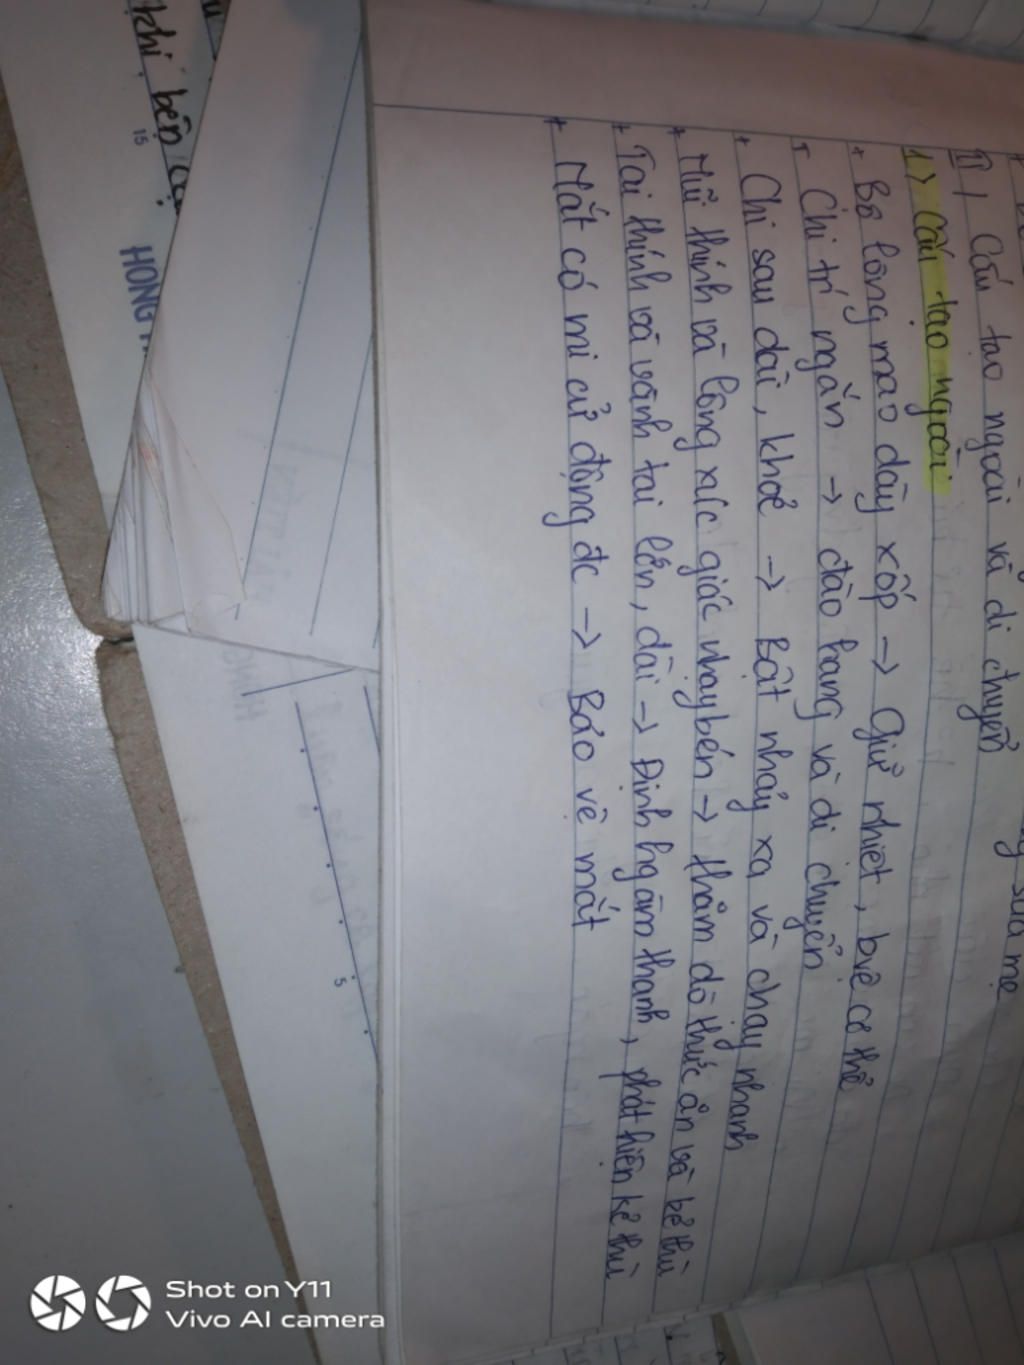 sữa mẹ
II / Cấu tạo ngoài và di chuyển
1.> Cấu tạo ngoài
+ Bộ lông mao dày xốp -> Giữ nhiệt, bvệ cơ thể
+ Chi trc ngắn -> đào hang và di chuyển
+ Chi sau dài, khoẻ -> Bật nhảy xa và chạy nhanh
+ Mũi thính và lông xúc giác nhạy bén -> thăm dò thức ăn và kẻ thù
+ Tai thính và vành tai lớn, dài -> Định hg âm thanh, phát hiện kẻ thù
+ Mắt có mi cử động đc -> Bảo vệ mắt
khi bện
15
HONG
5
Shot on Y11
Vivo AI camera